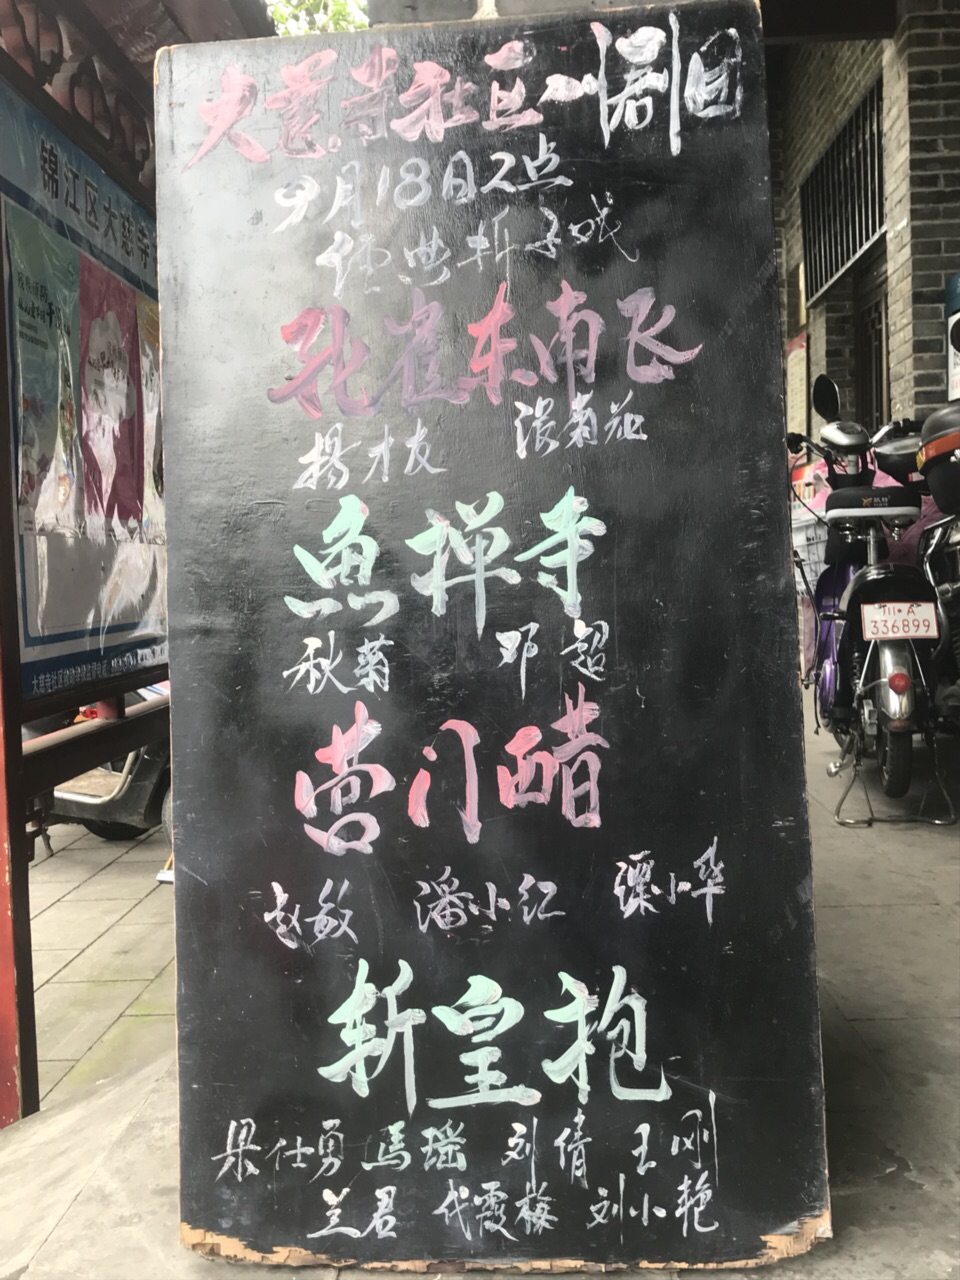 大慈寺社区川剧团
9月18日2点
经典折子戏
孔雀东南飞
杨才友
鱼禅寺
秋菊 邓超
营门醋
赵敏 潘小红 谭小华
斩皇袍
梁仕勇 马瑶 刘倩 王刚
兰君 代霞梅 刘小艳
锦江区大慈寺
川·A
336899